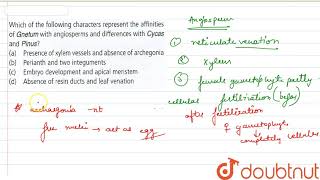 Which of the following characters represent the affinities
of Gnetum with angiosperms and differences with Cycas
and Pinus?
(a) Presence of xylem vessels and absence of archegonia
(b) Perianth and two integuments
(c) Embryo development and apical meristem
(d) Absence of resin ducts and leaf venation
Angiosperm
① reticulate venation
② xylem
③ female gametophyte partly
cellular fertilization (before)
after fertilization
♀ gametophyte
completely cellular
archegonia nt
free nuclei → act as egg
doubtnut